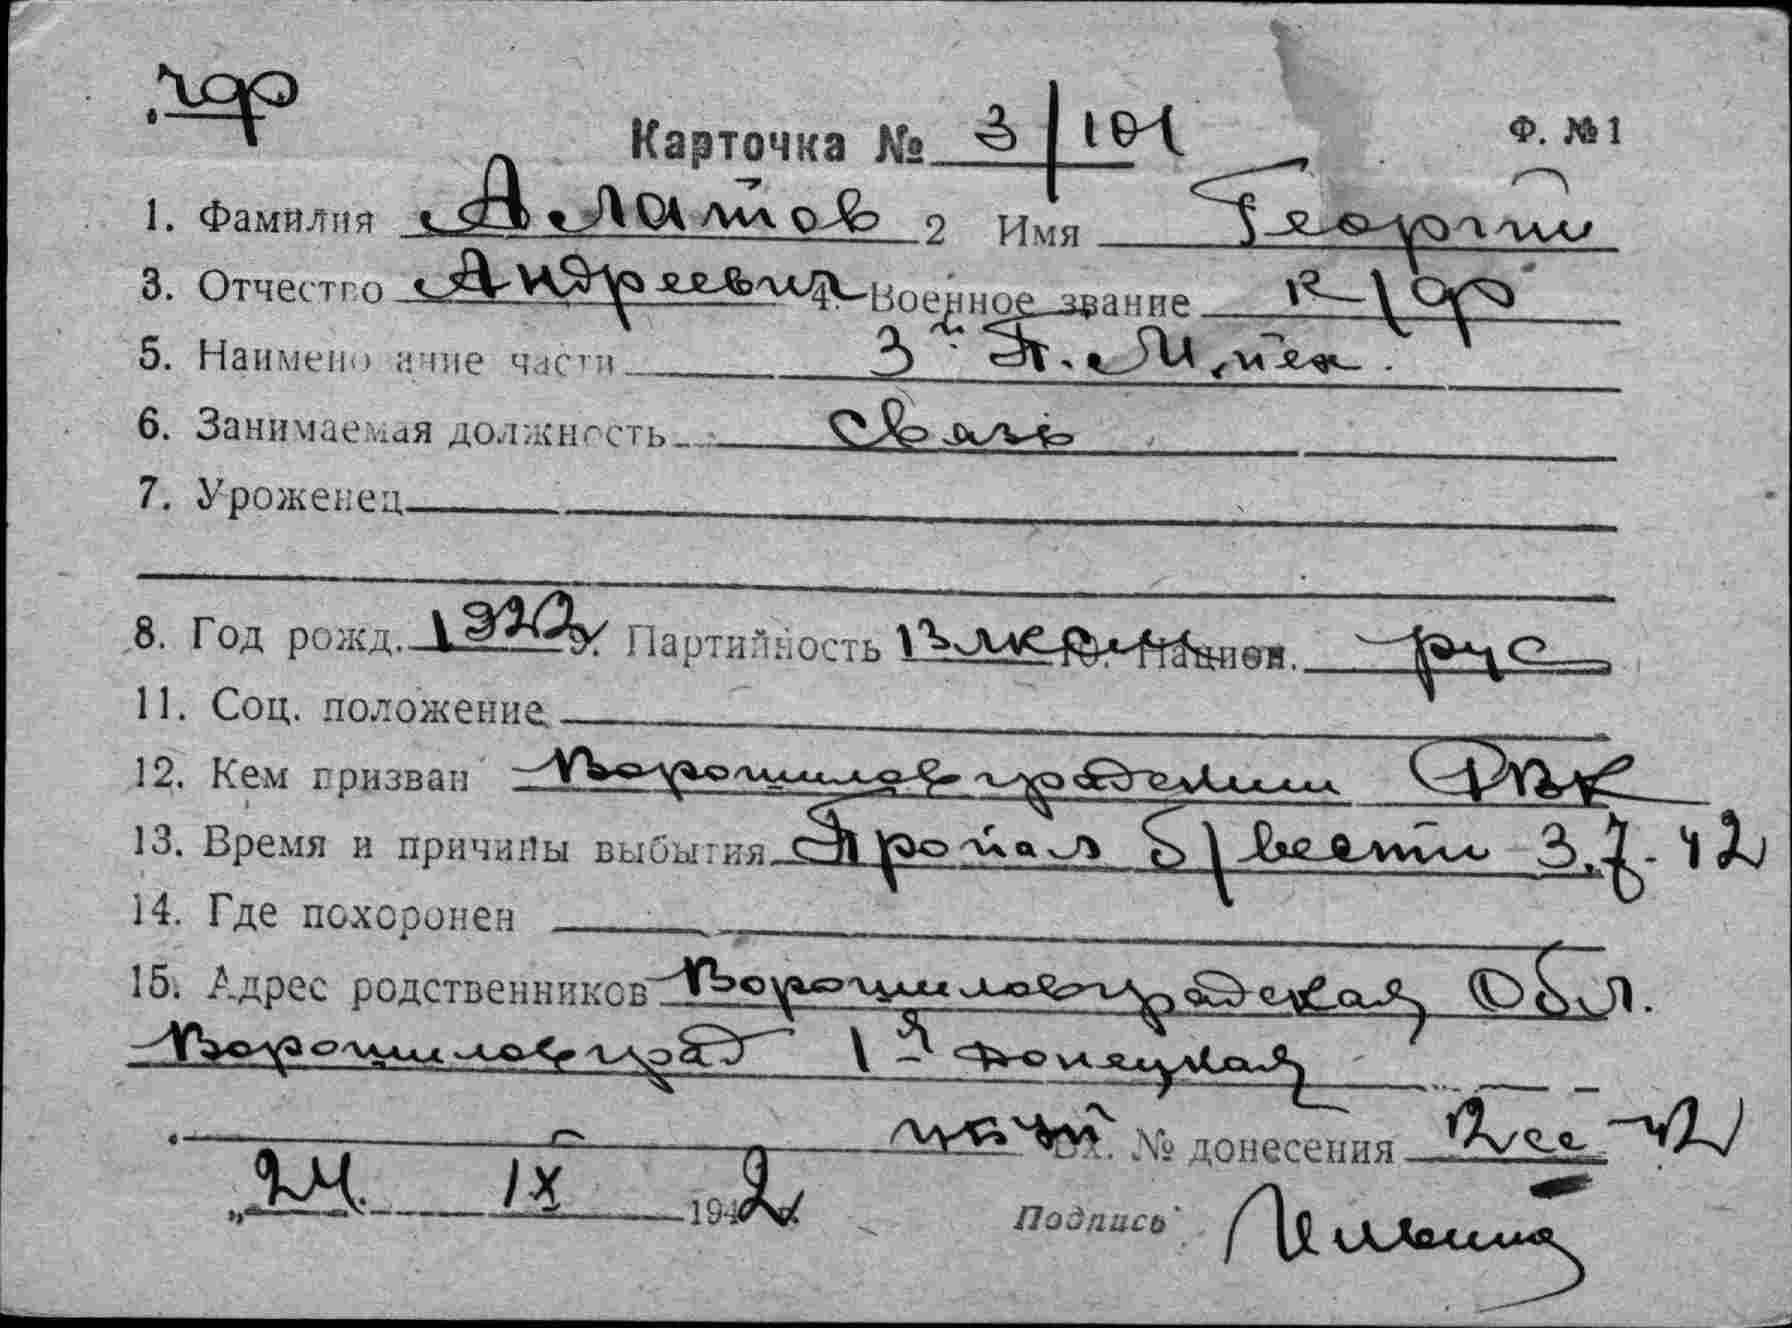 Карточка № 3/101 Ф. №1
1. Фамилия Алатов 2 Имя Георгий
3. Отчество Андреевич 4. Военное звание к-р
5. Наименование части 3
6. Занимаемая должность Связь
7. Уроженец
8. Год рожд. 1922 9. Партийность влксм 10. Национ. рус
11. Соц. положение
12. Кем призван Ворошиловградским РВК
13. Время и причины выбытия Пропал б/вести 3.7.42
14. Где похоронен
15. Адрес родственников Ворошиловградская обл.
Ворошиловград 1я Донецкая
Вх. № донесения
„24. IX 1942
Подпись